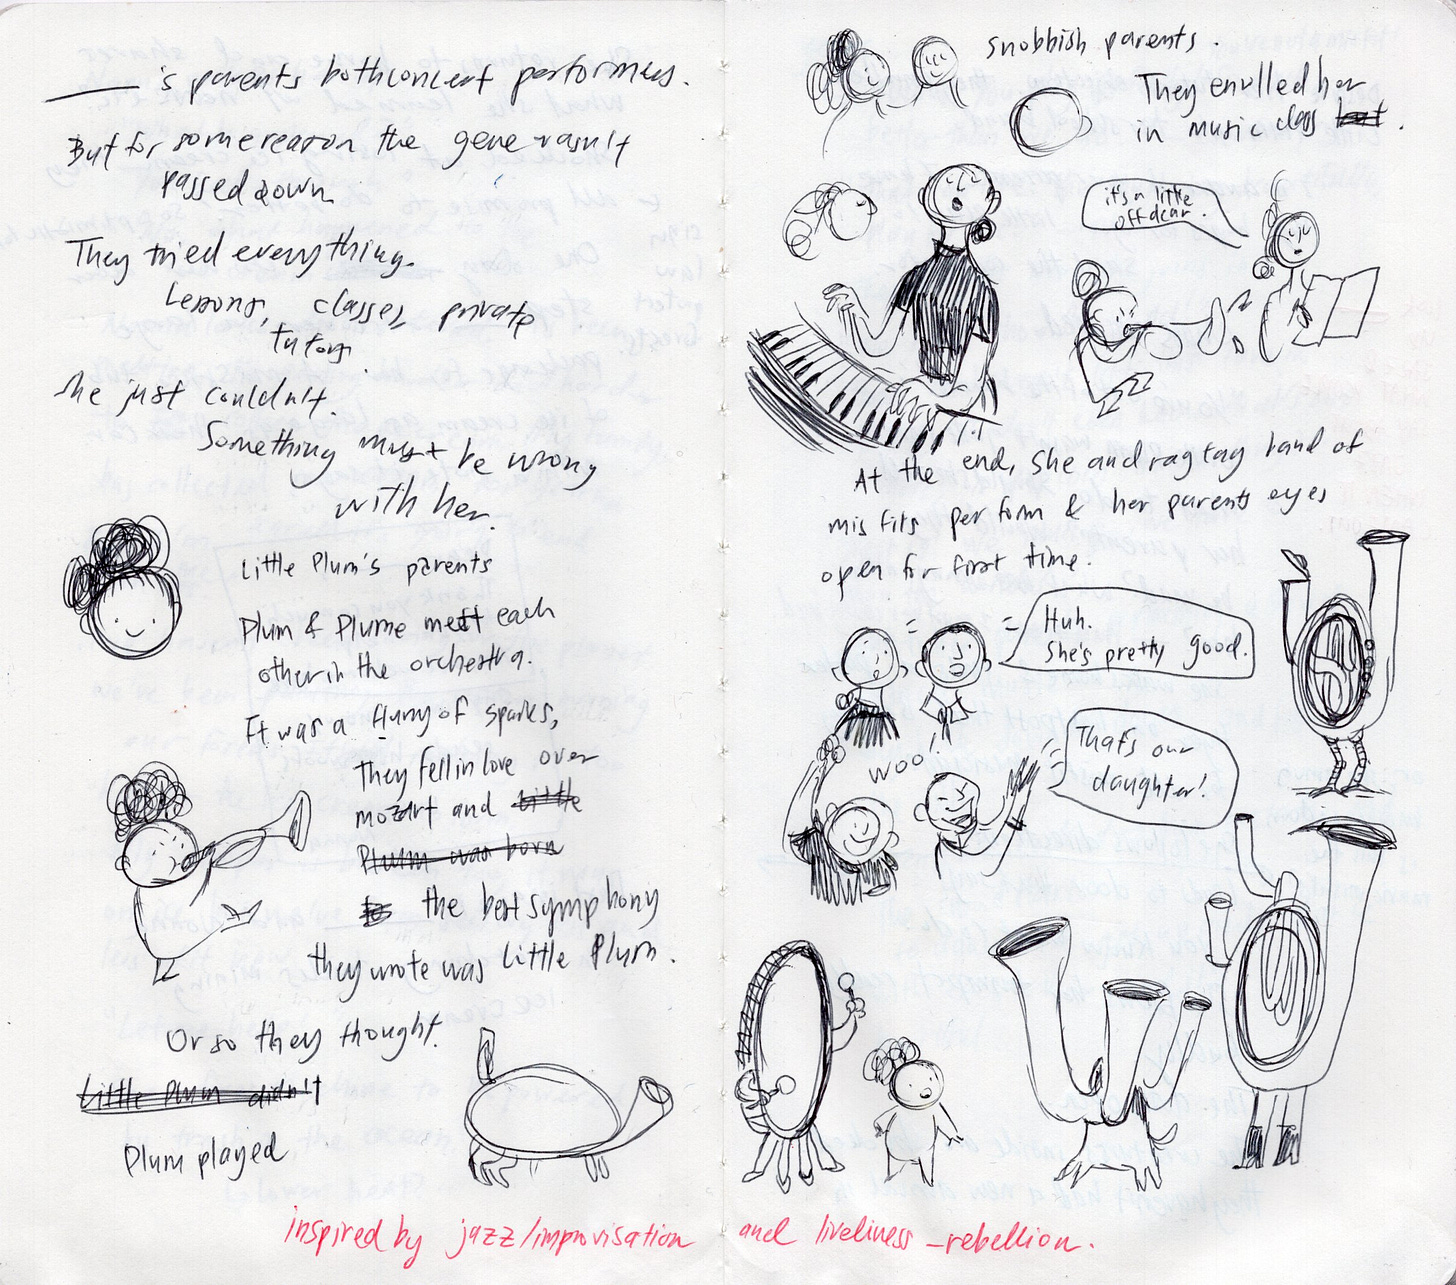 ____'s parents both concert performers.
But for some reason the gene wasn't
passed down
They tried everything.
Lessons, classes, private
tutors.
She just couldn't.
Something must be wrong
with her.
Little Plum's parents
Plum & Plume meet each
other in the orchestra.
It was a flurry of sparks,
They fell in love over
mozart and little
Plum was born
the best symphony
they wrote was Little Plum.
Or so they thought.
Little Plum didn't
Plum played
snobbish parents.
They enrolled her
in music class but.
it's a little
off dear.
At the end, she and rag tag band of
misfits perform & her parents eyes
open for first time.
Huh.
She's pretty good.
woo
That's our
daughter!
inspired by jazz/improvisation and liveliness - rebellion.